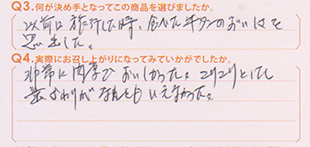 Q3.何が決め手となってこの商品を選びましたか。
以前に旅行した時、食べた牛タンのおいしさを
思い出した。
Q4.実際にお召し上がりになってみていかがでしたか。
非常に肉厚でおいしかった。コリコリとした
歯ざわりがなんともいえなかった。